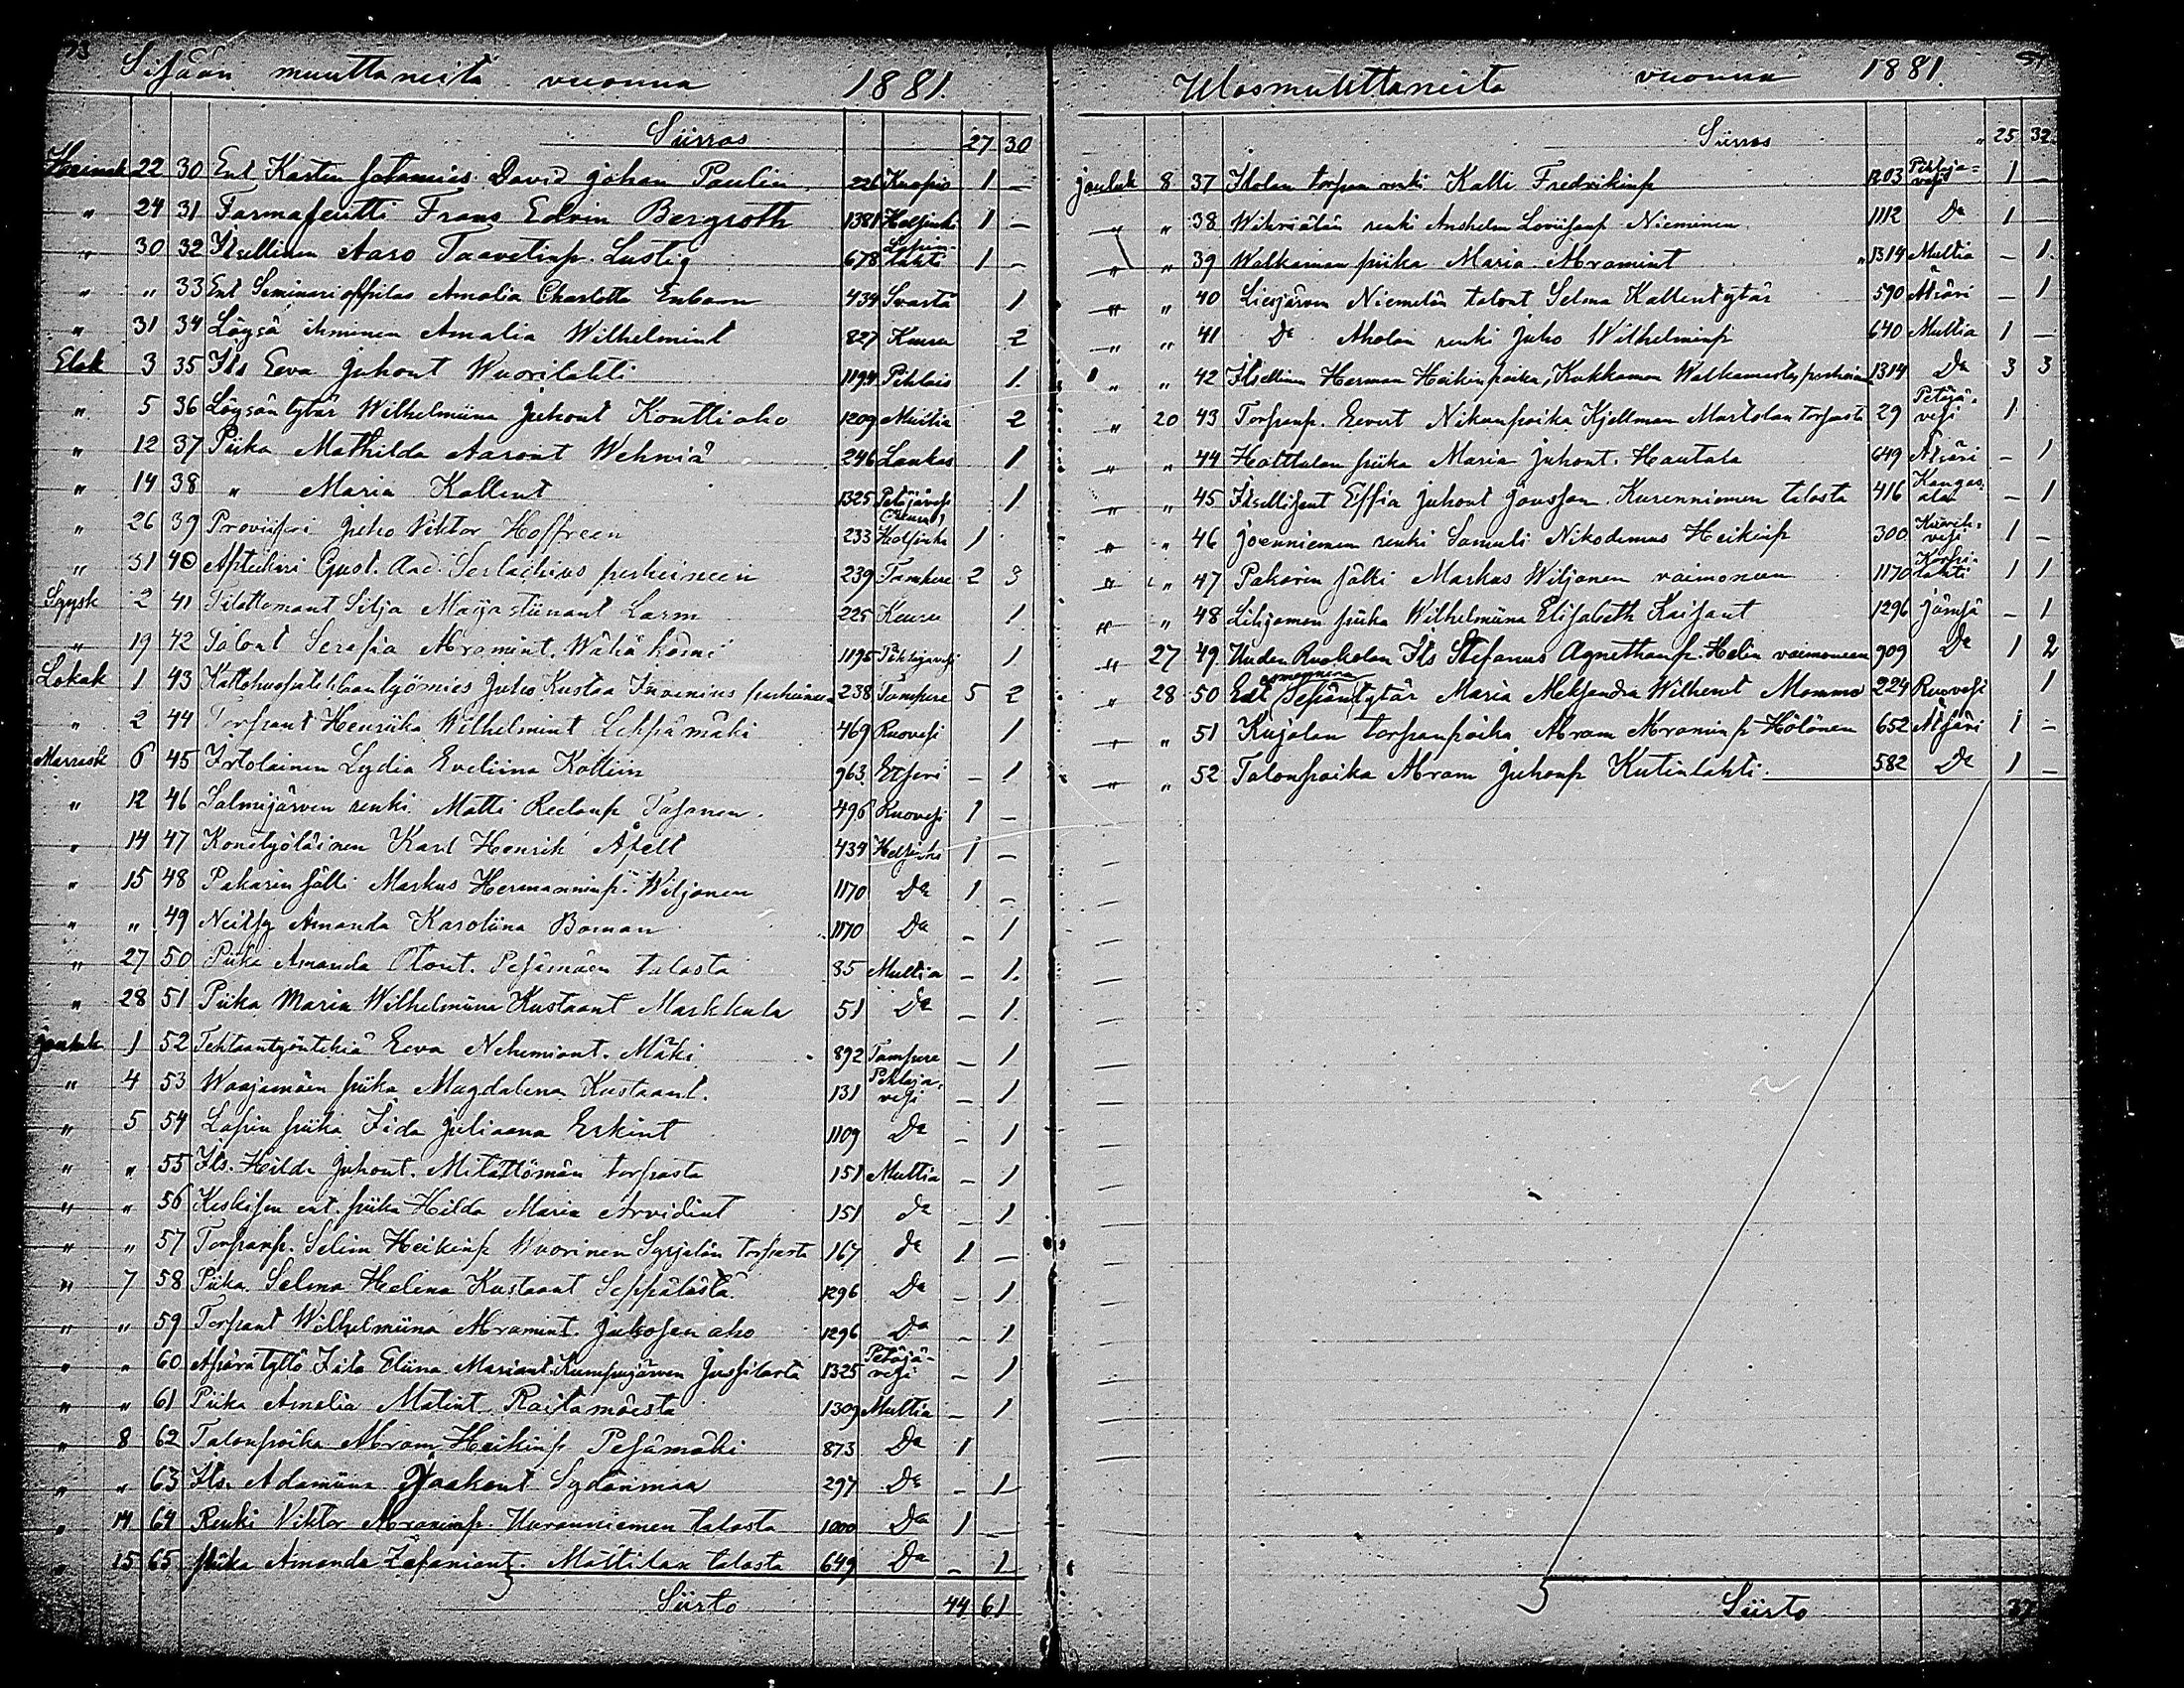 Sisään muuttaneita vuonna 1881.
Siirros 27 30
Heinäk 22 30 Ent Kartin Satamies David Johan Paulin 226 Kuopio 1 –
" 24 31 Farmaseutti Frans Edvin Bergroth 1381 Helsinki 1 –
" 30 32 Itsellinen Aaro Taavetinp. Lustig 678 1 –
" " 33 Ent Seminarioppilas Amalia Charlotta Enbom 434 Svarta 1
" 31 34 Löysä ihminen Amalia Wilhelmint 827 Keuru 2
Elok 3 35 Its Eeva Juhont Wuorilahti 1194 Pihlais 1
" 5 36 Löysän tytär Wilhelmiina Juhont Konttiaho 1209 Multia 2
" 12 37 Piika Mathilda Aaront Wehniä 246 Laukas 1
" 14 38 " Maria Kallent 1325 Petäjävesi 1
" 26 39 Proviisori Juho Viktor Hoffreen 233 Helsinki 1
" 31 40 Aptekari Gust. Ad. Serlachius perheineen 239 Tampere 2 3
Syysk 2 41 Tilattomant Silja Maijastiinant Larm 225 Keuru 1
" 19 42 Talont Serafia Abramint. Wähäkämi 1195 Pihlajavesi 1
Lokak 1 43 työmies Juho Kustaa Juvenius perheineen 238 Tampere 5 2
" 2 44 Torpant Henriika Wilhelmint Leppämäki 469 Ruovesi 1
Marrask 6 45 Irtolainen Lydia Eveliina Kottiin 963 Etseri – 1
" 12 46 Salmijärven renki Matti Reetanp Tasanen. 496 Ruovesi 1 –
" 14 47 Konetyöläinen Karl Henrik Åfelt 434 Helsinki 1 –
" 15 48 Pakarin sälli Markus Hermanninp. Wiljanen 1170 Do 1 –
" " 49 Neitsy Amanda Karoliina Boman 1170 Do – 1
" 27 50 Piika Amanda Otont. Pesämäen talosta 85 Multia – 1.
" 28 51 Piika Maria Wilhelmiina Kustaant Markkula 51 Do – 1.
Jouluk 1 52 Tehtaantyöntekiä Eeva Nehemiant. Mäki 892 Tampere – 1
" 4 53 Waajamäen piika Magdalena Kustaant. 131 Pihlajavesi – 1
" 5 54 Lapin piika Iida Juliaana Erkint 1109 Do – 1
" " 55 Its. Hilda Juhont. Mitättömän torpasta 151 Multia – 1
" " 56 Keskisen ent. piika Hilda Maria Arvidint 151 do – 1
" " 57 Torpanp. Selim Heikinp Wuorinen Syrjälän torpasta 167 do 1 –
" 7 58 Piika Selma Helena Kustaant Seppälästä 1296 Do – 1
" " 59 Torpant Wilhelmiina Abramint. Juhosenaho 1296 Do – 1
" " 60 Äpärä tyttö Iida Eliina Mariant Jussilasta 1325 Petäjävesi – 1
" " 61 Piika Amalia Matint Raitamäestä 1309 Multia – 1
" 8 62 Talonpoika Abram Heikinp Pesämäki 873 Do 1
" " 63 Its. Adamiina Jaakont Sydänmaa 297 Do – 1
" 14 64 Renki Viktor Abraminp. talosta 1000 Do 1 –
" 15 65 piika Amanda Zefaniant. Mattilan talosta 649 Do – 1
Siirto 44 61
Ulosmuuttaneita vuonna 1881
Siirros " 25 32
Jouluk 8 37 Iholan torpan renki Kalli Fredrikinp 1203 Pihlajavesi 1 –
" " 38 Wihriälän renki Anshelm Loviisanp Nieminen 1112 Do 1 –
" " 39 Walkaman piika Maria Abramint 1314 Multia – 1.
" " 40 Liesjärven Niemelän talont Selma Kallentytär 590 Ätsäri – 1
" " 41 Do Aholan renki Juho Wilhelminp 640 Multia 1 –
" " 42 Itsellinen Herman Heikinpoika, Kukkamon 1314 Do 3 3
" 20 43 Torpanp. Eevert Nikunpoika Kjellman Martolan torpasta 29 Petäjävesi 1
" " 44 Hattulan piika Maria Juhont. Hautala 649 Ätsäri – 1
" " 45 Itsellisent Effia Juhont Jousson Kurenniemen talosta 416 Kangasala – 1
" " 46 Joenniemen renki Samuli Nikodemus Heikinp 300 Kuorehvesi 1 –
" " 47 Pakarin sälli Markus Wiljanen vaimoneen 1170 Korpilahti 1 1
" " 48 Lihjamon piika Wilhelmiina Elisabeth Kaisant 1296 Jämsä – 1
" 27 49 Uuden Ruokolan Its Stefanus Agnethanp. Helin vaimoneen 909 Do 1 2
" 28 50 Ent Sepäntytär Maria Aleksandra Wilhemt Mommo 224 Ruovesi 1
" " 51 Kujalan torpanpoika Abram Abraminp Hölönen 652 Ätsäri 1 –
" " 52 Talonpoika Abram Juhonp Kutinlahti. 582 Do 1 –
Siirto 37